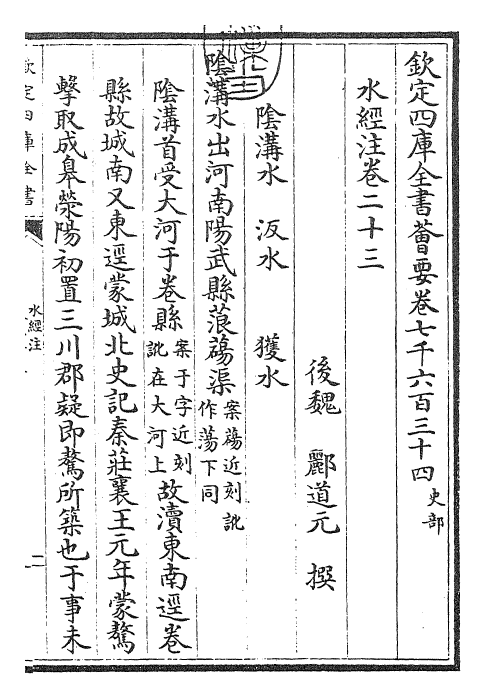 欽定四庫全書薈要卷七千六百三十四 史部
水經注卷二十三
後魏 酈道元 撰
陰溝水 汳水 獲水
陰溝水出河南陽武縣蒗蕩渠案蕩近刻訛作蕩下同
陰溝首受大河于卷縣案于字近刻訛在大河上故瀆東南逕卷
縣故城南又東逕蒙城北史記秦莊襄王元年蒙驁
擊取成臯滎陽初置三川郡疑即驁所築也于事未
欽定四庫全書
水經注